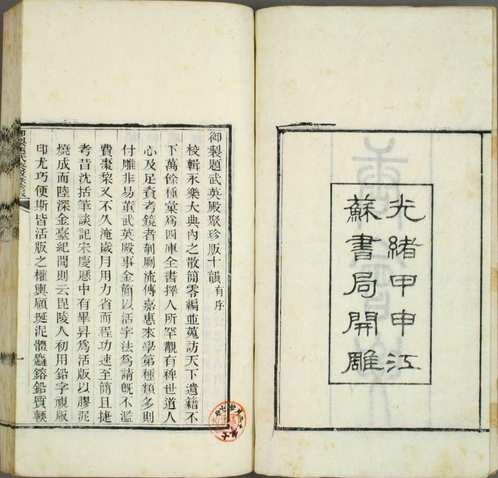 光緒甲申江
蘇書局開雕
御製題武英殿聚珍版十韻有序
校輯永樂大典內之散簡零編並蒐訪天下遺籍不
下萬餘種彙為四庫全書擇人所罕覯有裨世道人
心及足資考鏡者剞劂流傳嘉惠來學第種類多則
付雕非易董武英殿事金簡以活字法為請既不濫
費棗梨又不久淹歲月用力省而程功速至簡且捷
考昔沈括筆談記宋慶厯中有畢昇為活版以膠泥
燒成而陸深金臺紀聞則云毘陵人初用鉛字視版
印尤巧便斯皆活版之權輿顧埏泥體麤鎔鉛質輭